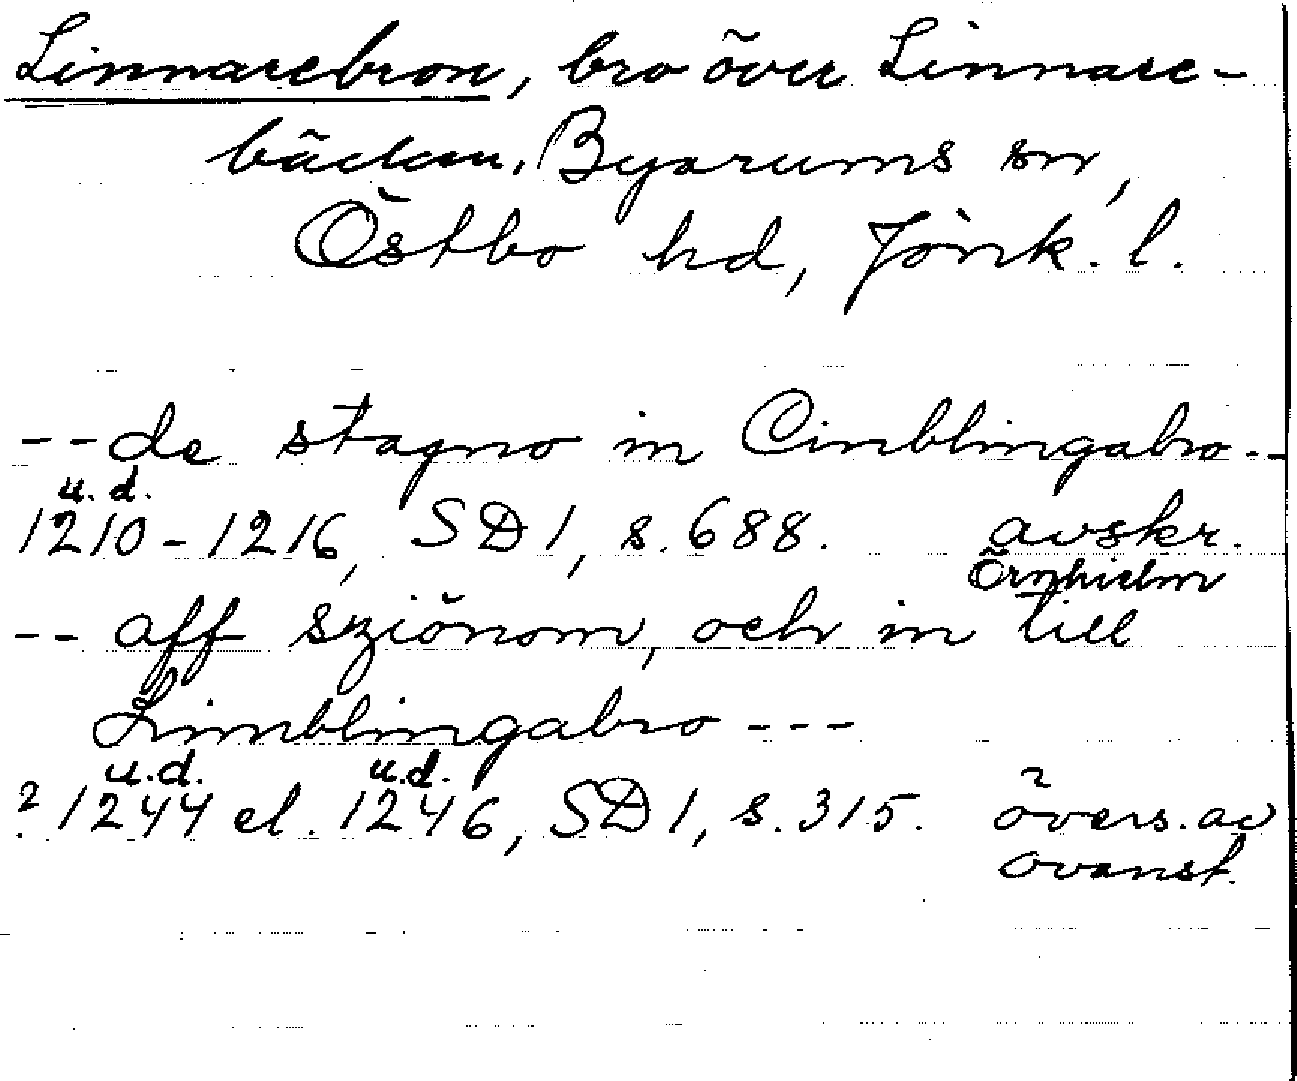 Linnarebron, bro över Linnare-
bäcken, Byarums sn,
Östbo hd, Jönk. l.
-- de stagno in Cinblingabro --
u. d.
1210-1216, SD 1, s. 688. avskr.
Örnhielm
-- aff sziönom, och in till
Limblingabro ---
u.d. u.d.
? 1244 el. 1246, SD 1, s. 315. övers. av
ovanst.